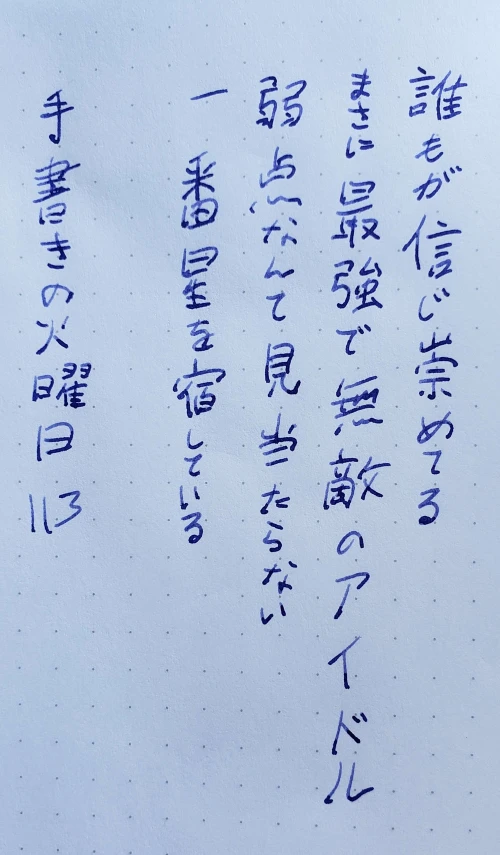 誰もが信じ崇めてる
まさに最強で無敵のアイドル
弱点なんて見当たらない
一番星を宿している
手書きの火曜日 113